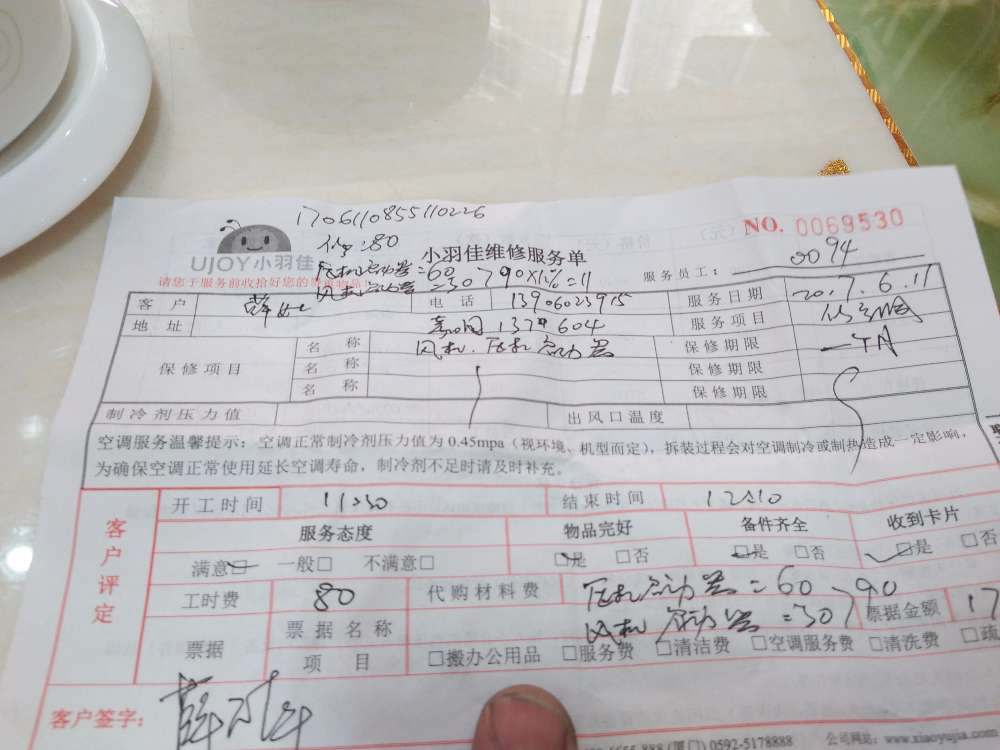 1706110855110226
:80
NO. 0069530
UJOY小羽佳
小羽佳维修服务单
压机启动器=60
风机启动器=30 } 90×12%=11
服务员工: 0094
请您于服务前收拾好您的贵重物品!
客户 薛 电话 13906023915 服务日期 2017.6.11
地址 137# 604 服务项目
保修项目 名称 风机.压机启动器 保修期限 一个月
名称 保修期限
名称 保修期限
制冷剂压力值 出风口温度
空调服务温馨提示:空调正常制冷剂压力值为 0.45mpa(视环境、机型而定),拆装过程会对空调制冷或制热造成一定影响,
为确保空调正常使用延长空调寿命,制冷剂不足时请及时补充。
客户评定
开工时间 11:30 结束时间 12:10
服务态度 物品完好 备件齐全 收到卡片
满意□ 一般□ 不满意□ □是 □否 □是 □否 □是 □否
工时费 80 代购材料费 压机启动器=60
风机启动器=30 } 90 票据金额 17
票据 票据名称
项目 □搬办公用品 □服务费 □清洁费 □空调服务费 □清洗费 □疏
客户签字: 薛
(厦门) 0592-5178888 公司网站: www.xiaoyujia.com